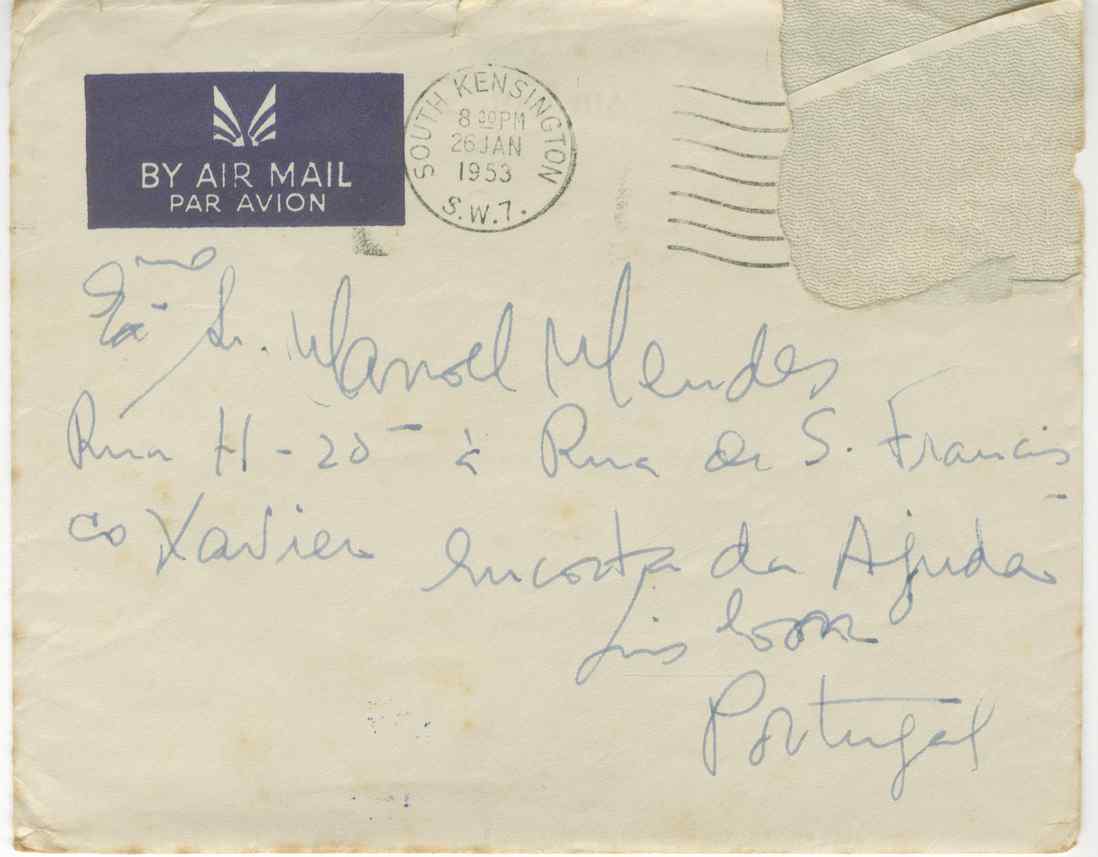 BY AIR MAIL
PAR AVION
SOUTH KENSINGTON
8 30 PM
26 JAN
1953
S.W.7.
Exmo Sr. Manoel Mendes
Rua H-20- à Rua de S. Francis
co Xavier Encosta da Ajuda
Lisboa
Portugal